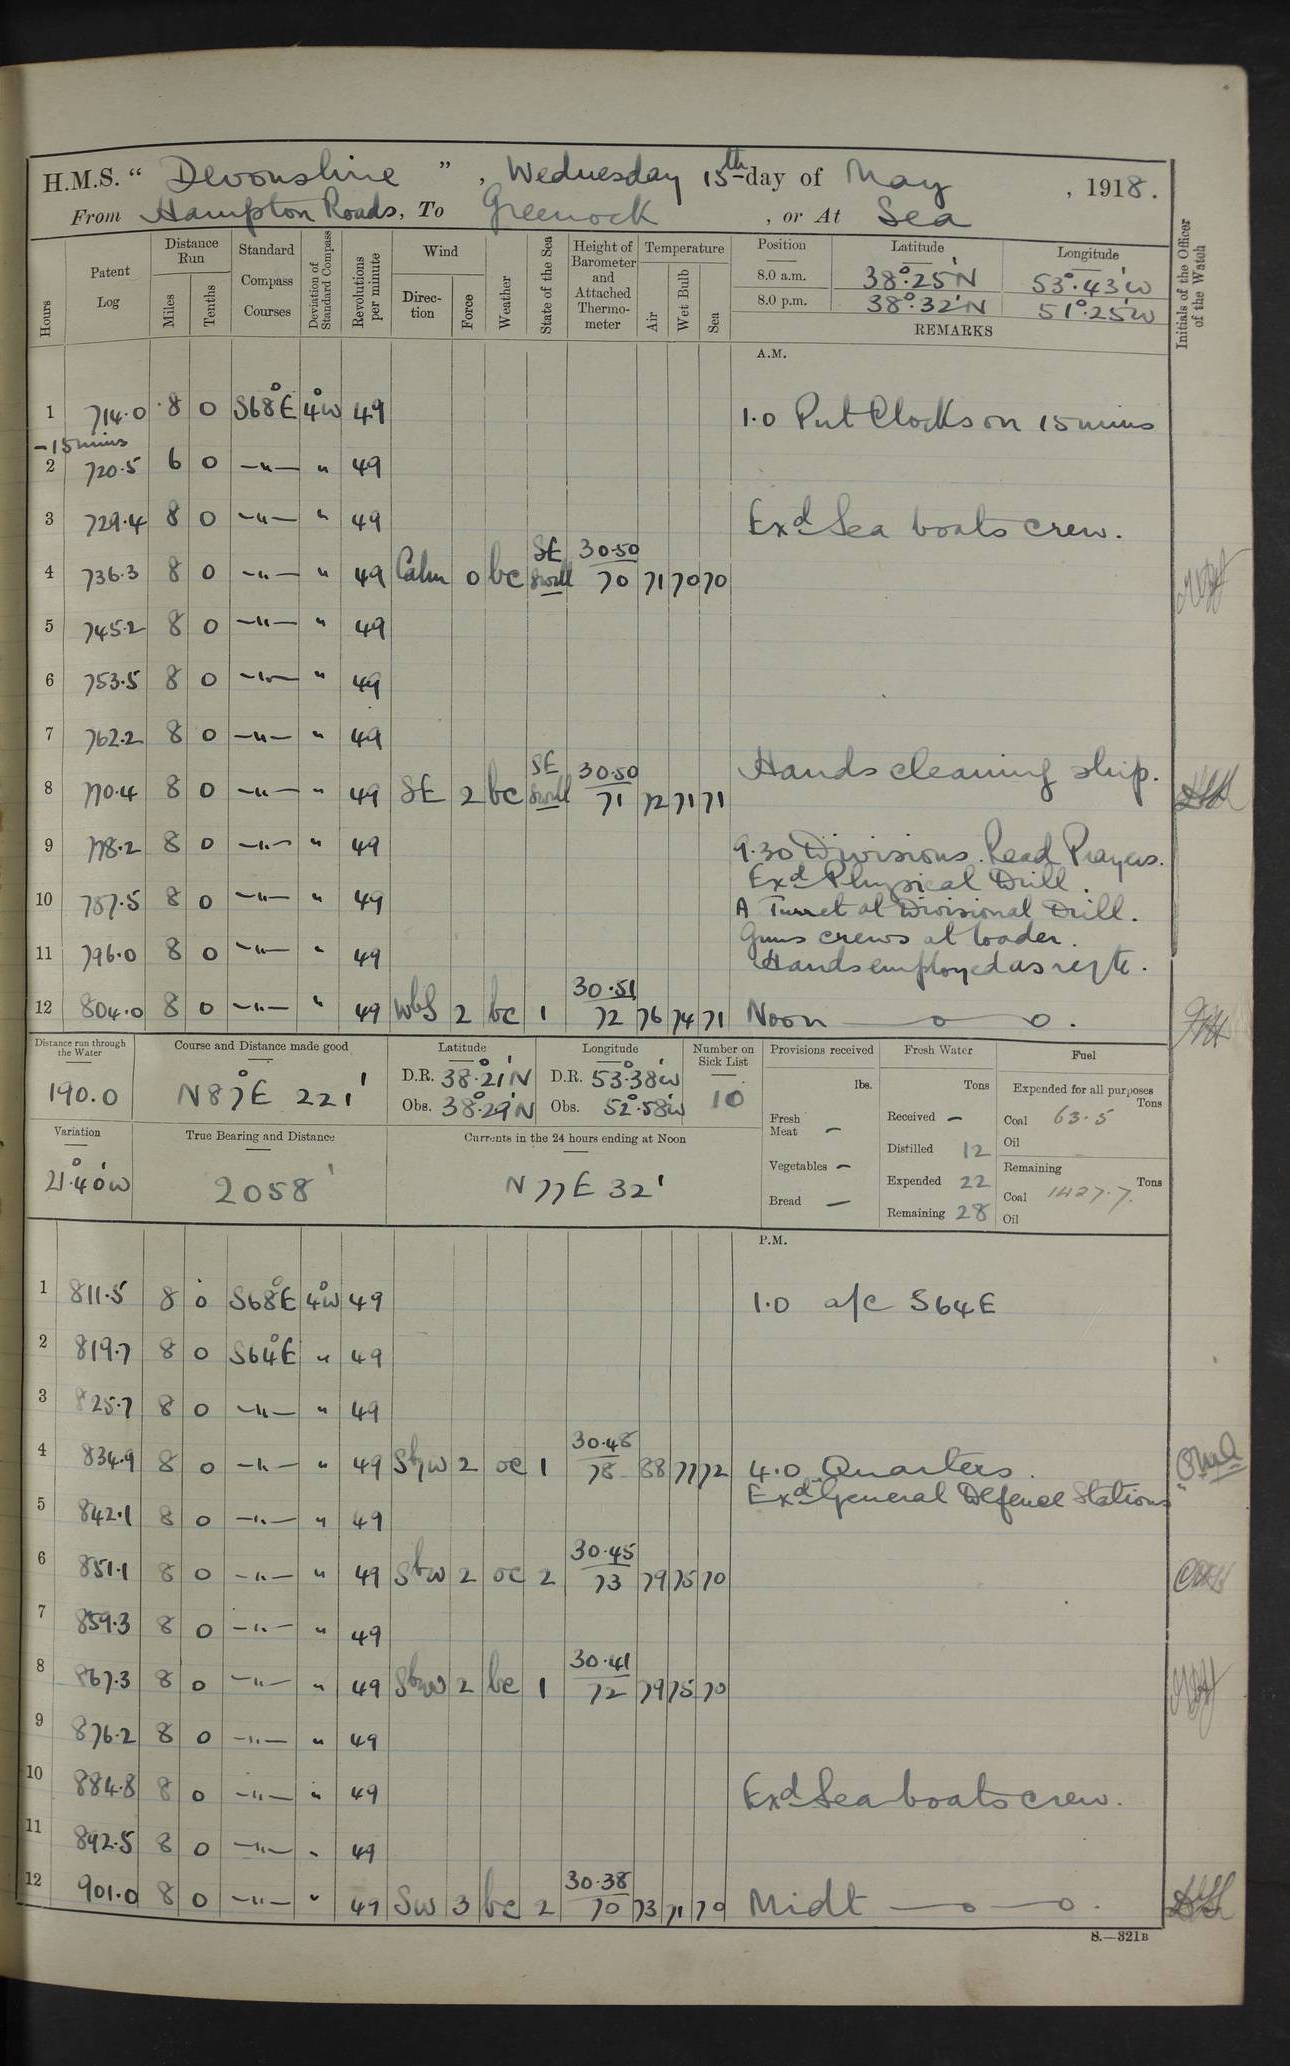 H.M.S. “ Devonshire ” , Wednesday 15th day of May , 1918.
From Hampton Roads, To Greenock , or At Sea
Hours
Patent Log
Distance Run
Miles
Tenths
Standard Compass Courses
Deviation of Standard Compass
Revolutions per minute
Wind
Direction
Force
Weather
State of the Sea
Height of Barometer and Attached Thermometer
Temperature
Air
Wet Bulb
Sea
Position Latitude Longitude
8.0 a.m. 38°.25'N 53°.43'W
8.0 p.m. 38°.32'N 51°.25'W
REMARKS
Initials of the Officer of the Watch
A.M.
1 714.0 8 0 S68°E 4°W 49 1.0 Put Clocks on 15 mins
-15 mins
2 720.5 6 0 —"— " 49
3 729.4 8 0 —"— " 49 Exd Sea boats crew.
4 736.3 8 0 —"— " 49 Calm 0 bc SE Swell 30.50 70 71 70 70
5 745.2 8 0 —"— " 49
6 753.5 8 0 —"— " 49
7 762.2 8 0 —"— " 49
8 770.4 8 0 —"— " 49 SE 2 bc SE Swell 30.50 71 72 71 71 Hands cleaning ship.
9 778.2 8 0 —"— " 49 9.30 Divisions. Read Prayers.
Exd Physical Drill.
10 787.5 8 0 —"— " 49 A Turret at Divisional Drill.
Guns crews at loader.
11 796.0 8 0 —"— " 49 Hands employed as reqte.
12 804.0 8 0 —"— " 49 WbS 2 bc 1 30.51 72 76 74 71 Noon —o—o.
Distance run through the Water
190.0
Course and Distance made good
N87°E 221'
Latitude
D.R. 38°.21'N
Obs. 38°.29'N
Longitude
D.R. 53°.38'W
Obs. 52°.58'W
Number on Sick List
10
Provisions received
lbs.
Fresh Meat —
Vegetables —
Bread —
Fresh Water
Tons
Received —
Distilled 12
Expended 22
Remaining 28
Fuel
Expended for all purposes
Tons
Coal 63.5
Oil
Remaining
Tons
Coal 1427.7.
Oil
Variation
21°.40'W
True Bearing and Distance
2058'
Currents in the 24 hours ending at Noon
N77E 32'
P.M.
1 811.5 8 0 S68°E 4°W 49 1.0 a/c S64E
2 819.7 8 0 S64°E " 49
3 825.7 8 0 —"— " 49
4 834.9 8 0 —"— " 49 SbyW 2 oc 1 30.48 78 88 77 72 4.0 Quarters.
Exd General Defence Stations
5 842.1 8 0 —"— " 49
6 851.1 8 0 —"— " 49 SbW 2 oc 2 30.45 73 79 75 70
7 859.3 8 0 —"— " 49
8 867.3 8 0 —"— " 49 SbW 2 bc 1 30.41 72 79 75 70
9 876.2 8 0 —"— " 49
10 884.8 8 0 —"— " 49 Exd Sea boats crew.
11 892.5 8 0 —"— " 49
12 901.0 8 0 —"— " 49 SW 3 bc 2 30.38 70 73 71 70 Midt —o—o.
S.—321B